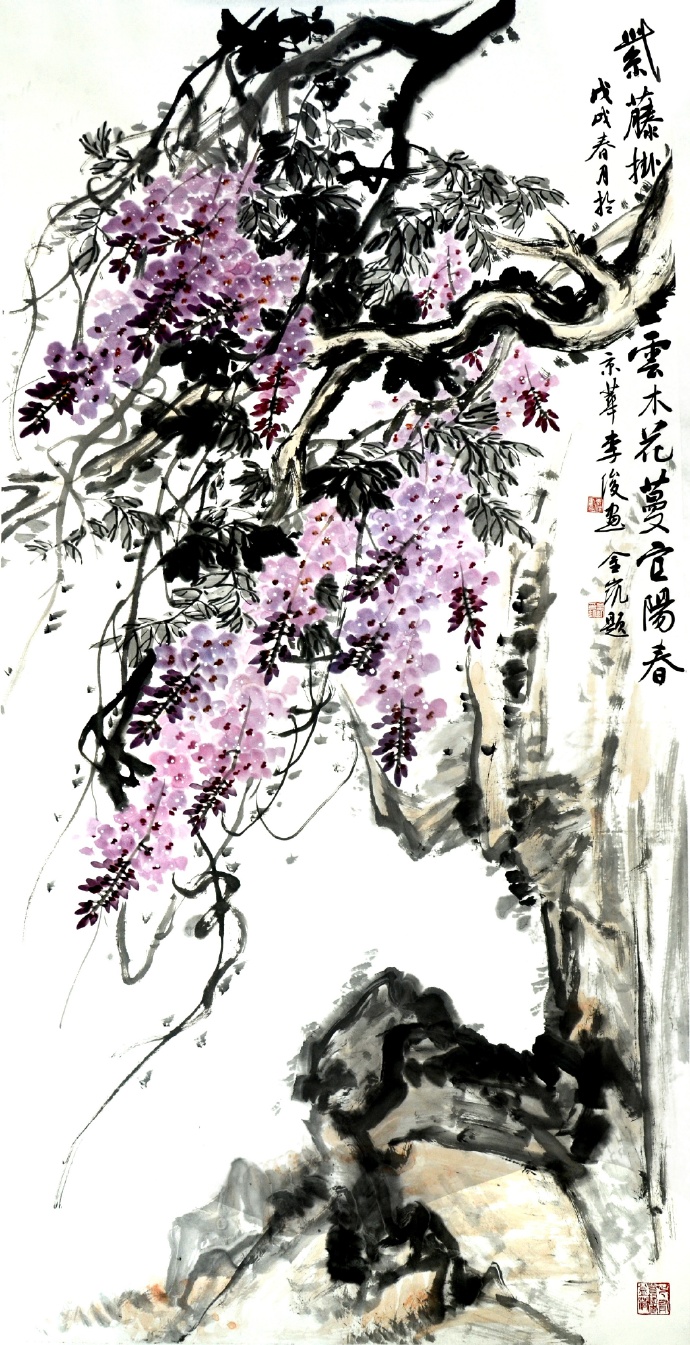 紫藤掛雲木花蔓宜陽春
戊戌春月於京華李俊畫金題